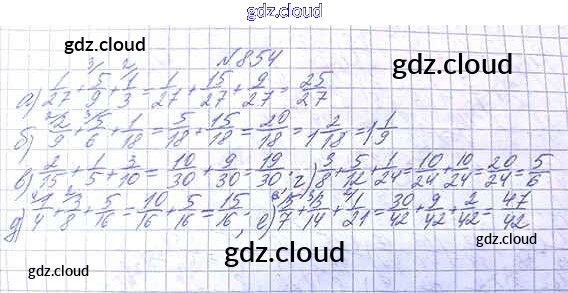 gdz.cloud
gdz.cloud
gdz.cloud
№854
а) 1/27 + 5/9 + 1/3 = 1/27 + 15/27 + 9/27 = 25/27
б) 2/9 + 5/6 + 1/18 = 5/18 + 15/18 = 20/18 = 1 2/18 = 1 1/9
gdz.cloud
в) 2/15 + 1/5 + 3/10 = 10/30 + 9/30 = 19/30; г) 3/8 + 5/12 + 1/24 = 10/24 + 10/24 = 20/24 = 5/6
д) 1/4 + 3/8 + 5/16 = 10/16 + 5/16 = 15/16; е) 5/7 + 3/14 + 1/21 = 30/42 + 9/42 + 2/42 = 47/42
gdz.cloud
gdz.cloud
gdz.cloud